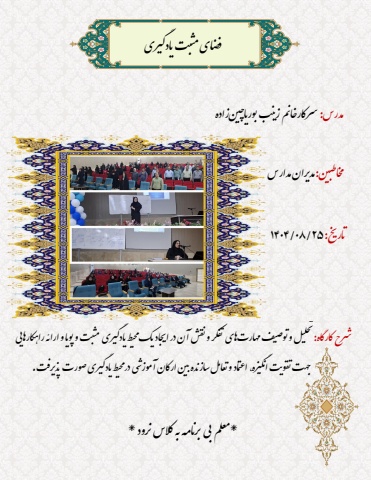 فضای مثبت یادگیری
مدرس: سرکار خانم زینب بوریاچین زاده
مخاطبین: مدیران مدارس
تاریخ: ۱۴۰۴/۰۸/۲۵
شرح کارگاه: تحلیل و توصیف مهارت‌های تفکر و نقش آن در ایجاد یک محیط یادگیری مثبت و پویا و ارائه راهکارهایی
جهت تقویت انگیزه، اعتماد و تعامل سازنده بین ارکان آموزشی در محیط یادگیری صورت پذیرفت.
*معلم بی برنامه به کلاس نرود *